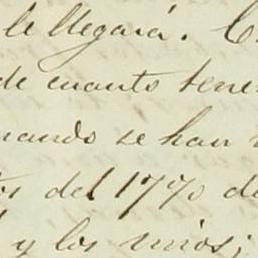 le llegará.
de cuanto tene
ando se han
os del 17 % de
y los vinos;